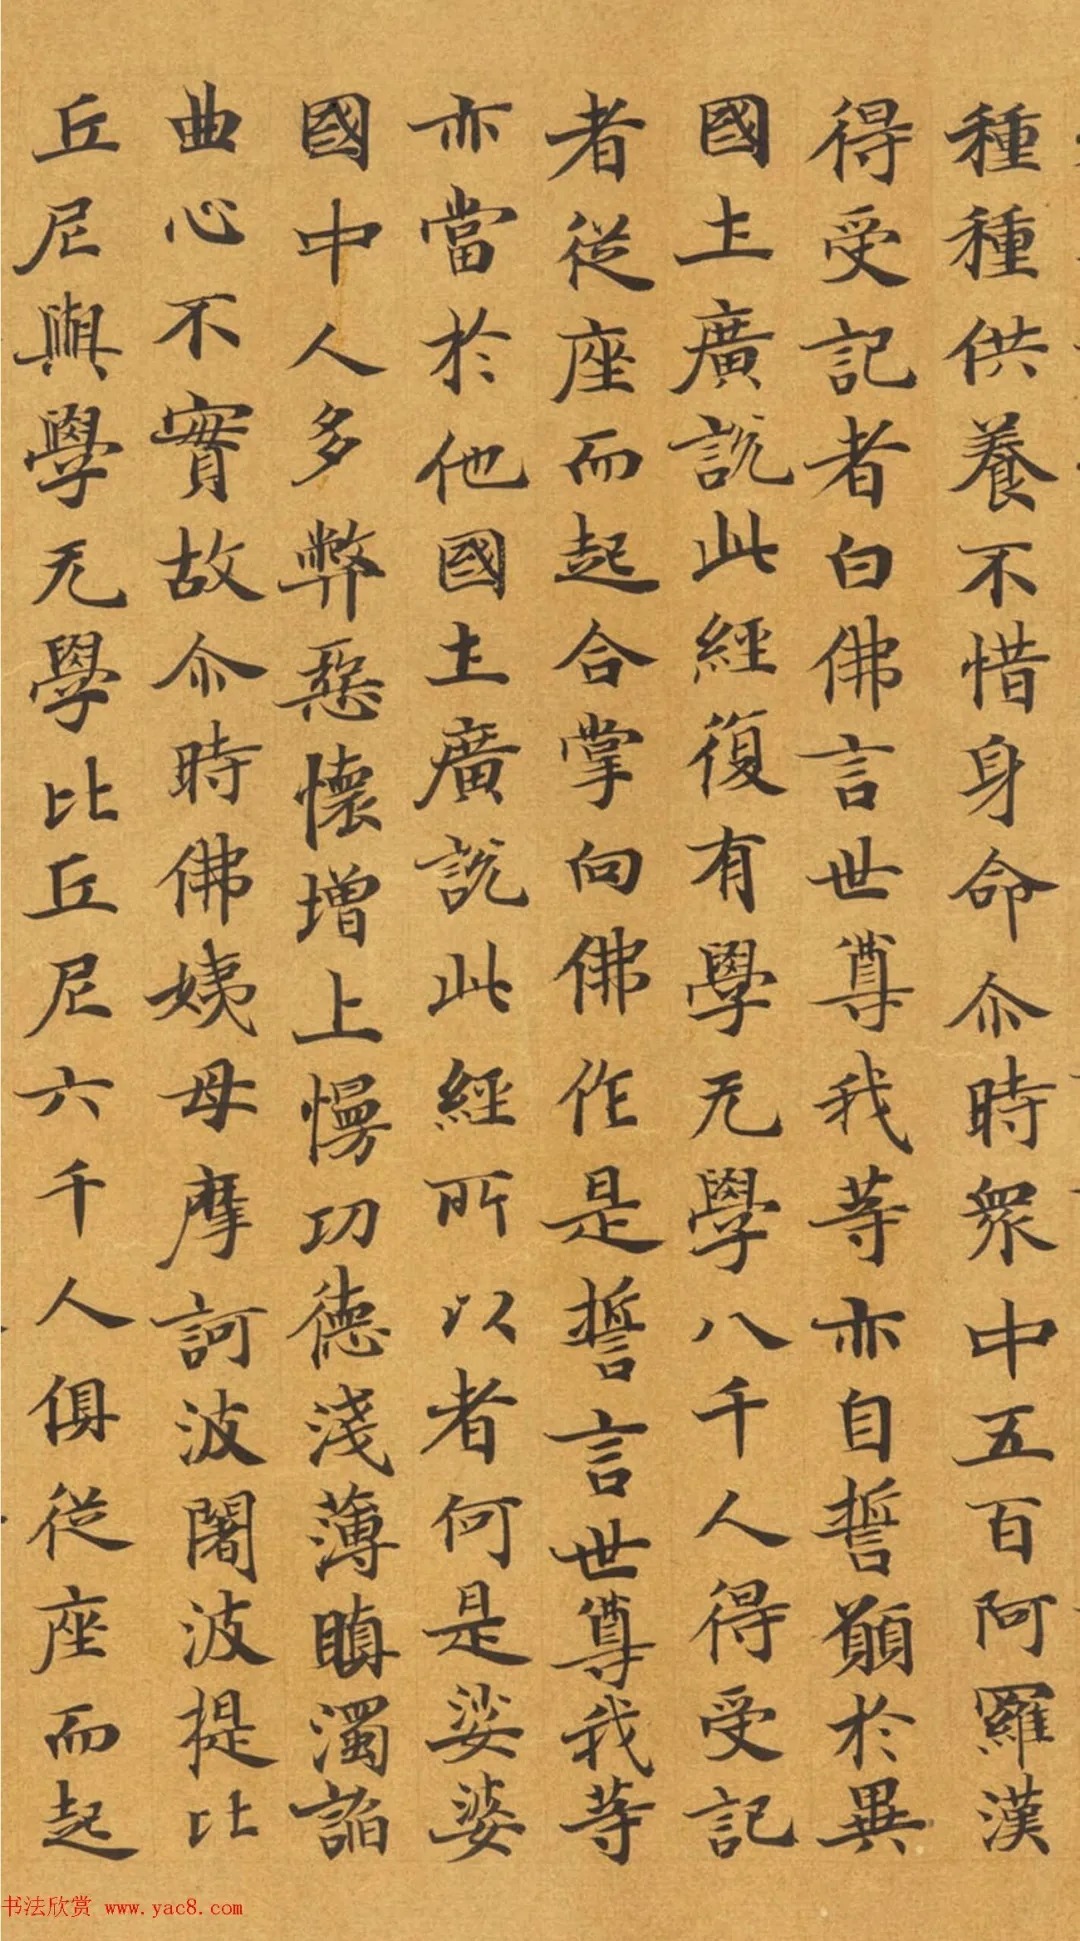 種種供養不惜身命尒時眾中五百阿羅漢
得受記者白佛言世尊我等亦自誓願於異
國土廣說此經復有學无學八千人得受記
者從座而起合掌向佛作是誓言世尊我等
亦當於他國土廣說此經所以者何是娑婆
國中人多弊惡懷增上慢功德淺薄瞋濁諂
曲心不實故尒時佛姨母摩訶波闍波提比
丘尼與學无學比丘尼六千人俱從座而起
书法欣赏 www.yac8.com